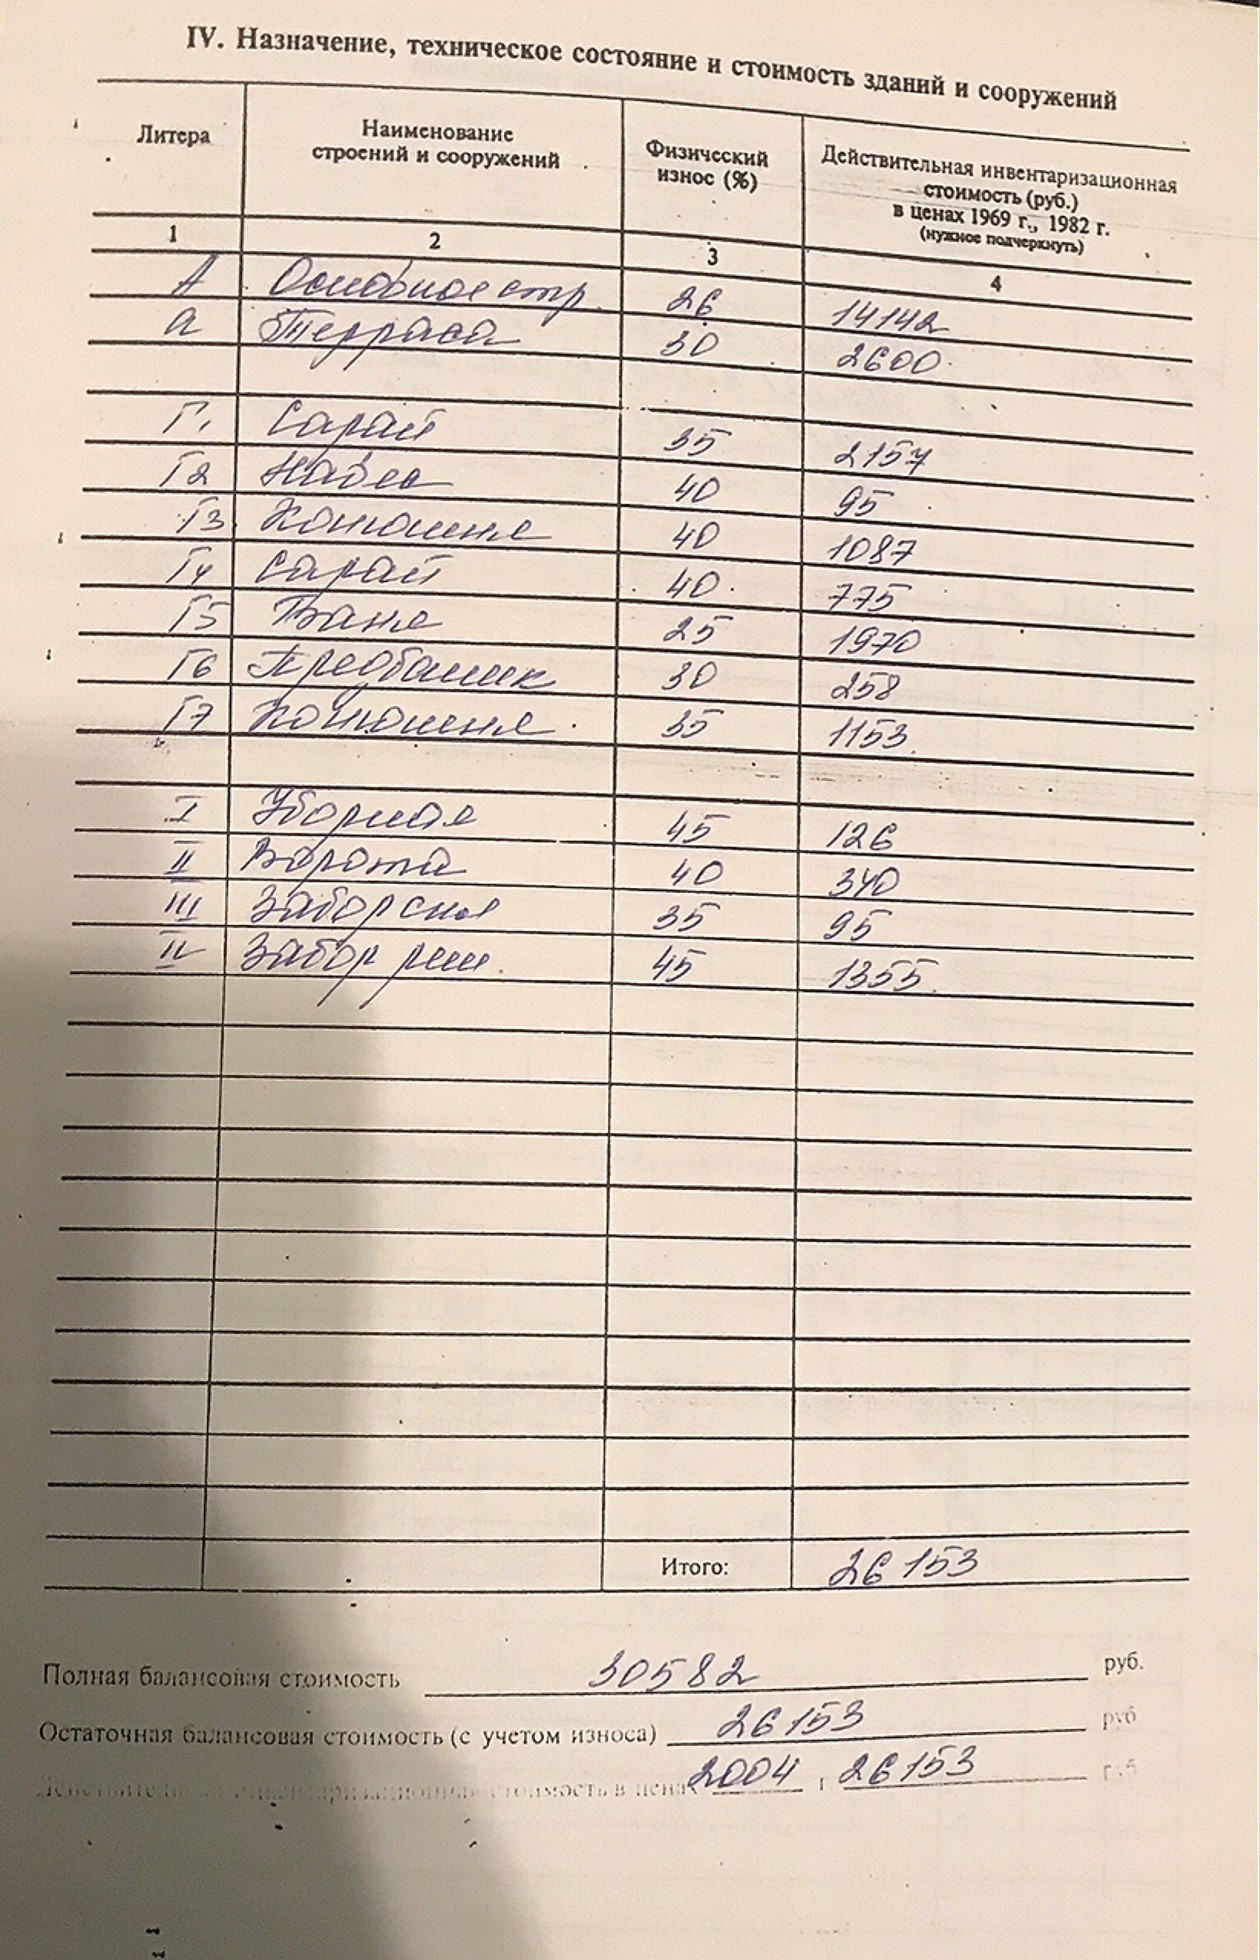 IV. Назначение, техническое состояние и стоимость зданий и сооружений
Литера Наименование строений и сооружений Физический износ (%) Действительная инвентаризационная стоимость (руб.) в ценах 1969 г., 1982 г. (нужное подчеркнуть)
1 2 3 4
А Основное стр. 26 14142
а Терраса 30 2600
Г1 Сарай 35 2157
Г2 Навес 40 95
Г3 Конюшня 40 1087
Г4 Сарай 40 775
Г5 Баня 25 1970
Г6 Предбанник 30 258
Г7 Конюшня 35 1153
I Уборная 45 126
II Ворота 40 340
III Забор 35 95
IV Забор реш. 45 1355
Итого: 26153
Полная балансовая стоимость 30582 руб.
Остаточная балансовая стоимость (с учетом износа) 26153 руб
Действительная инвентаризационная стоимость в ценах 2004 г. 26153 руб